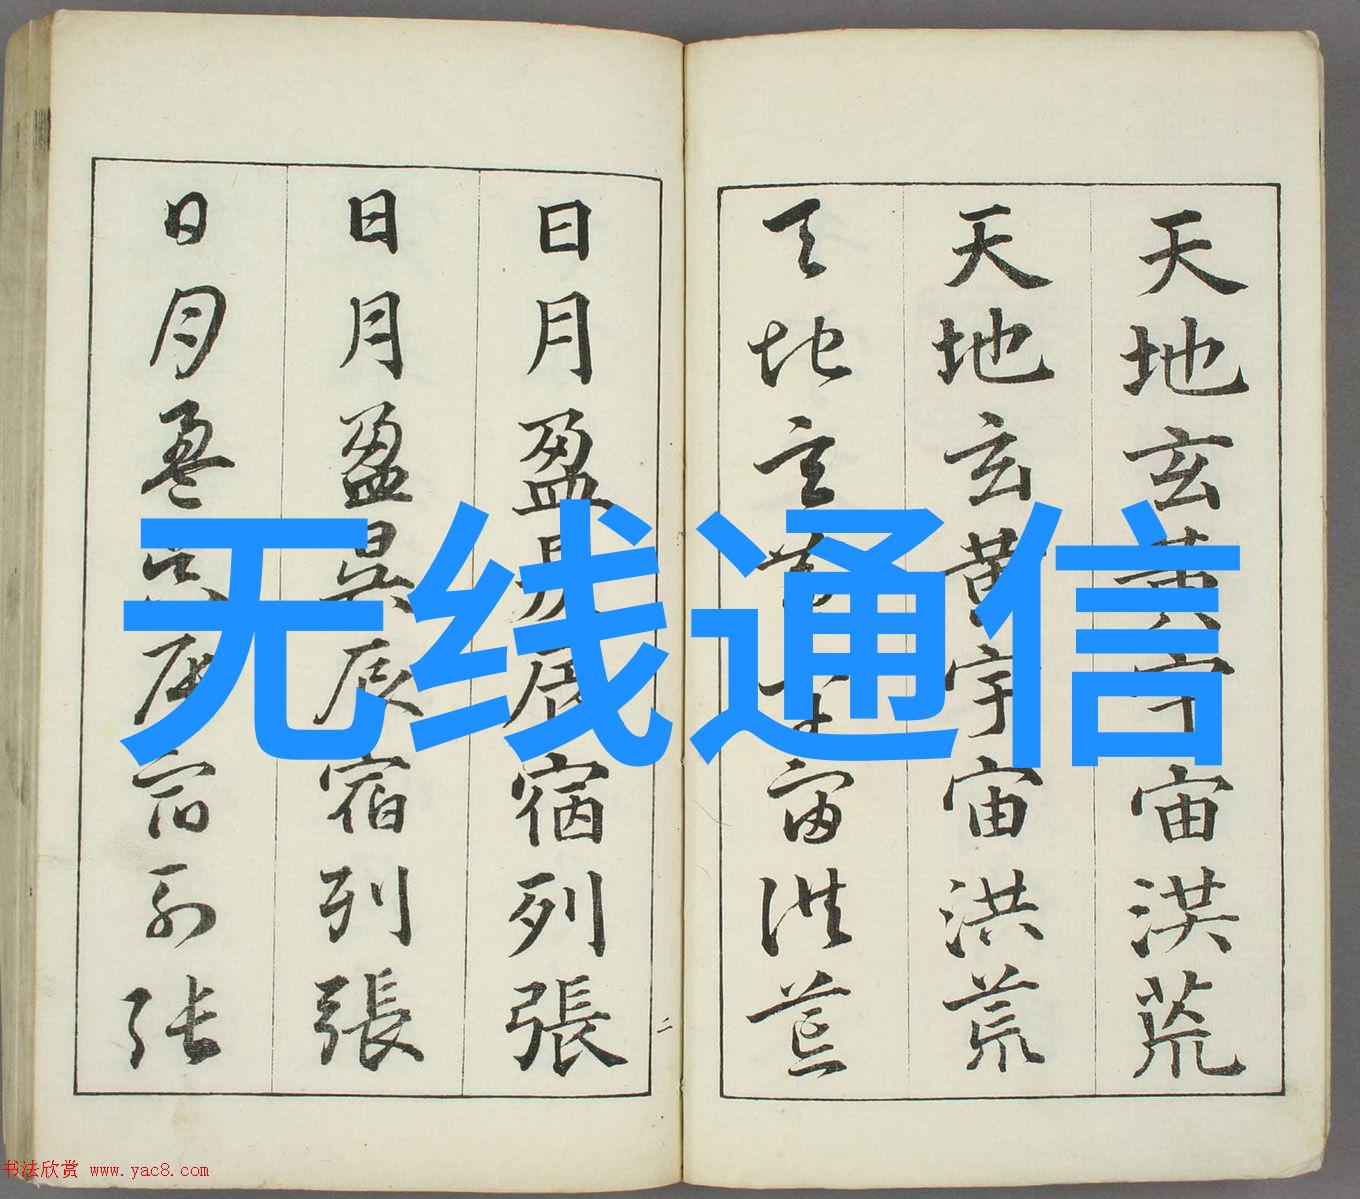 天地玄黄宇宙洪荒
天地玄黄宇宙洪荒
天地玄黄宇宙洪荒
日月盈昃辰宿列張
日月盈昃辰宿列張
日月盈昃辰宿列张
二
无线通信
书法欣赏 www.yac8.com